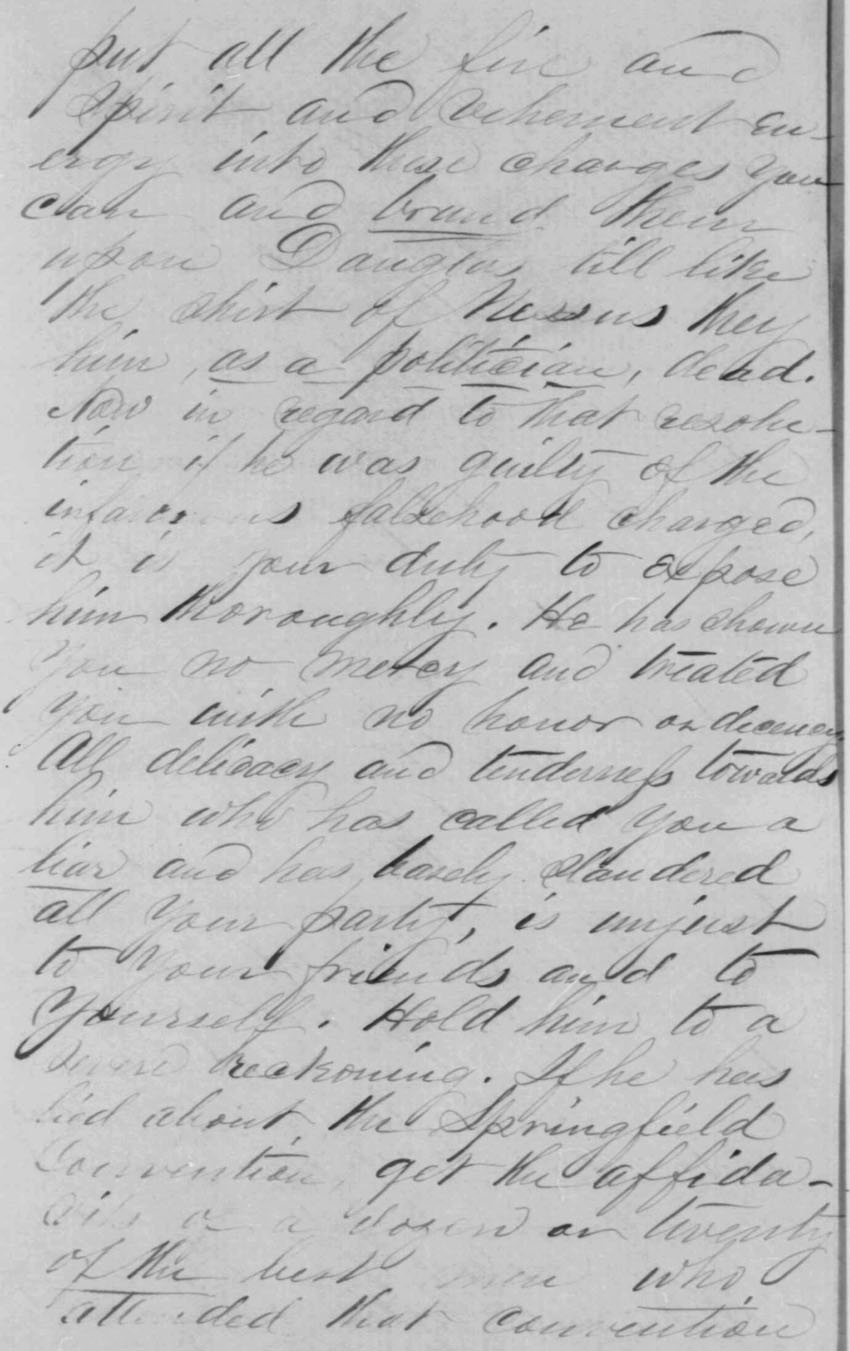 put all the fire and
Spirit and vehement en-
ergy into these charges you
can and brand them
upon Douglas till like
the shirt of Nessus they
him, as a politician, dead.
Now in regard to that resolu-
tion, if he was guilty of the
infamous falsehood charged,
it is your duty to expose
him thoroughly. He has shown
you no mercy and treated
you with no honor or decency
All delicacy and tenderness towards
him who has called you a
liar and has basely slandered
all your party, is unjust
to your friends and to
yourself. Hold him to a
severe reckoning. If he has
lied about the Springfield
Convention, get the affida-
vits of a dozen or twenty
of the best men who
attended that convention